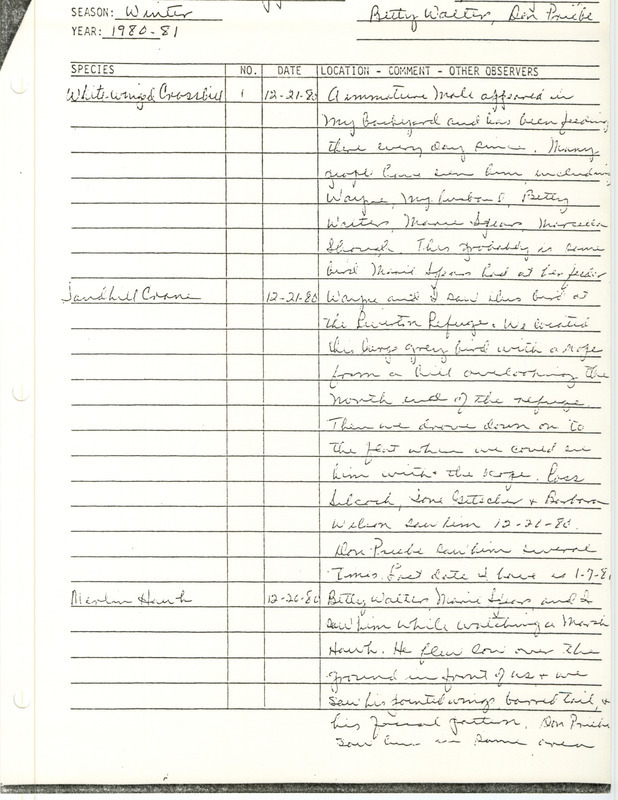 SEASON: Winter
Betty Walter, Don Priebe
YEAR: 1980-81
SPECIES NO. DATE LOCATION - COMMENT - OTHER OBSERVERS
White-winged Crossbill 1 12-21-80 A immature Male appeared in
My Backyard and has been feeding
there every day since. Many
people have seen him including
Wayne, My husband, Betty
Walters, Marie Spears, Marcella
This probably is same
bird Marie Spears had at her feeder
Sandhill Crane 12-21-80 Wayne and I saw this bird at
the Refuge. We located
this large grey bird with a scope
from a hill overlooking the
North end of the refuge.
Then we drove down on to
the flat where we could see
him with the scope. Ross
Silcock, Ione Getscher & Barbara
Wilson saw him 12-21-80.
Don Priebe saw him several
Times. Last date I have is 1-7-81
Merlin Hawk 12-20-80 Betty Walter, Marie Spears and I
saw him while watching a Marsh
Hawk. He flew low over the
ground in front of us & we
saw his pointed wings barred tail, &
his facial pattern. Don Priebe
saw him in same area